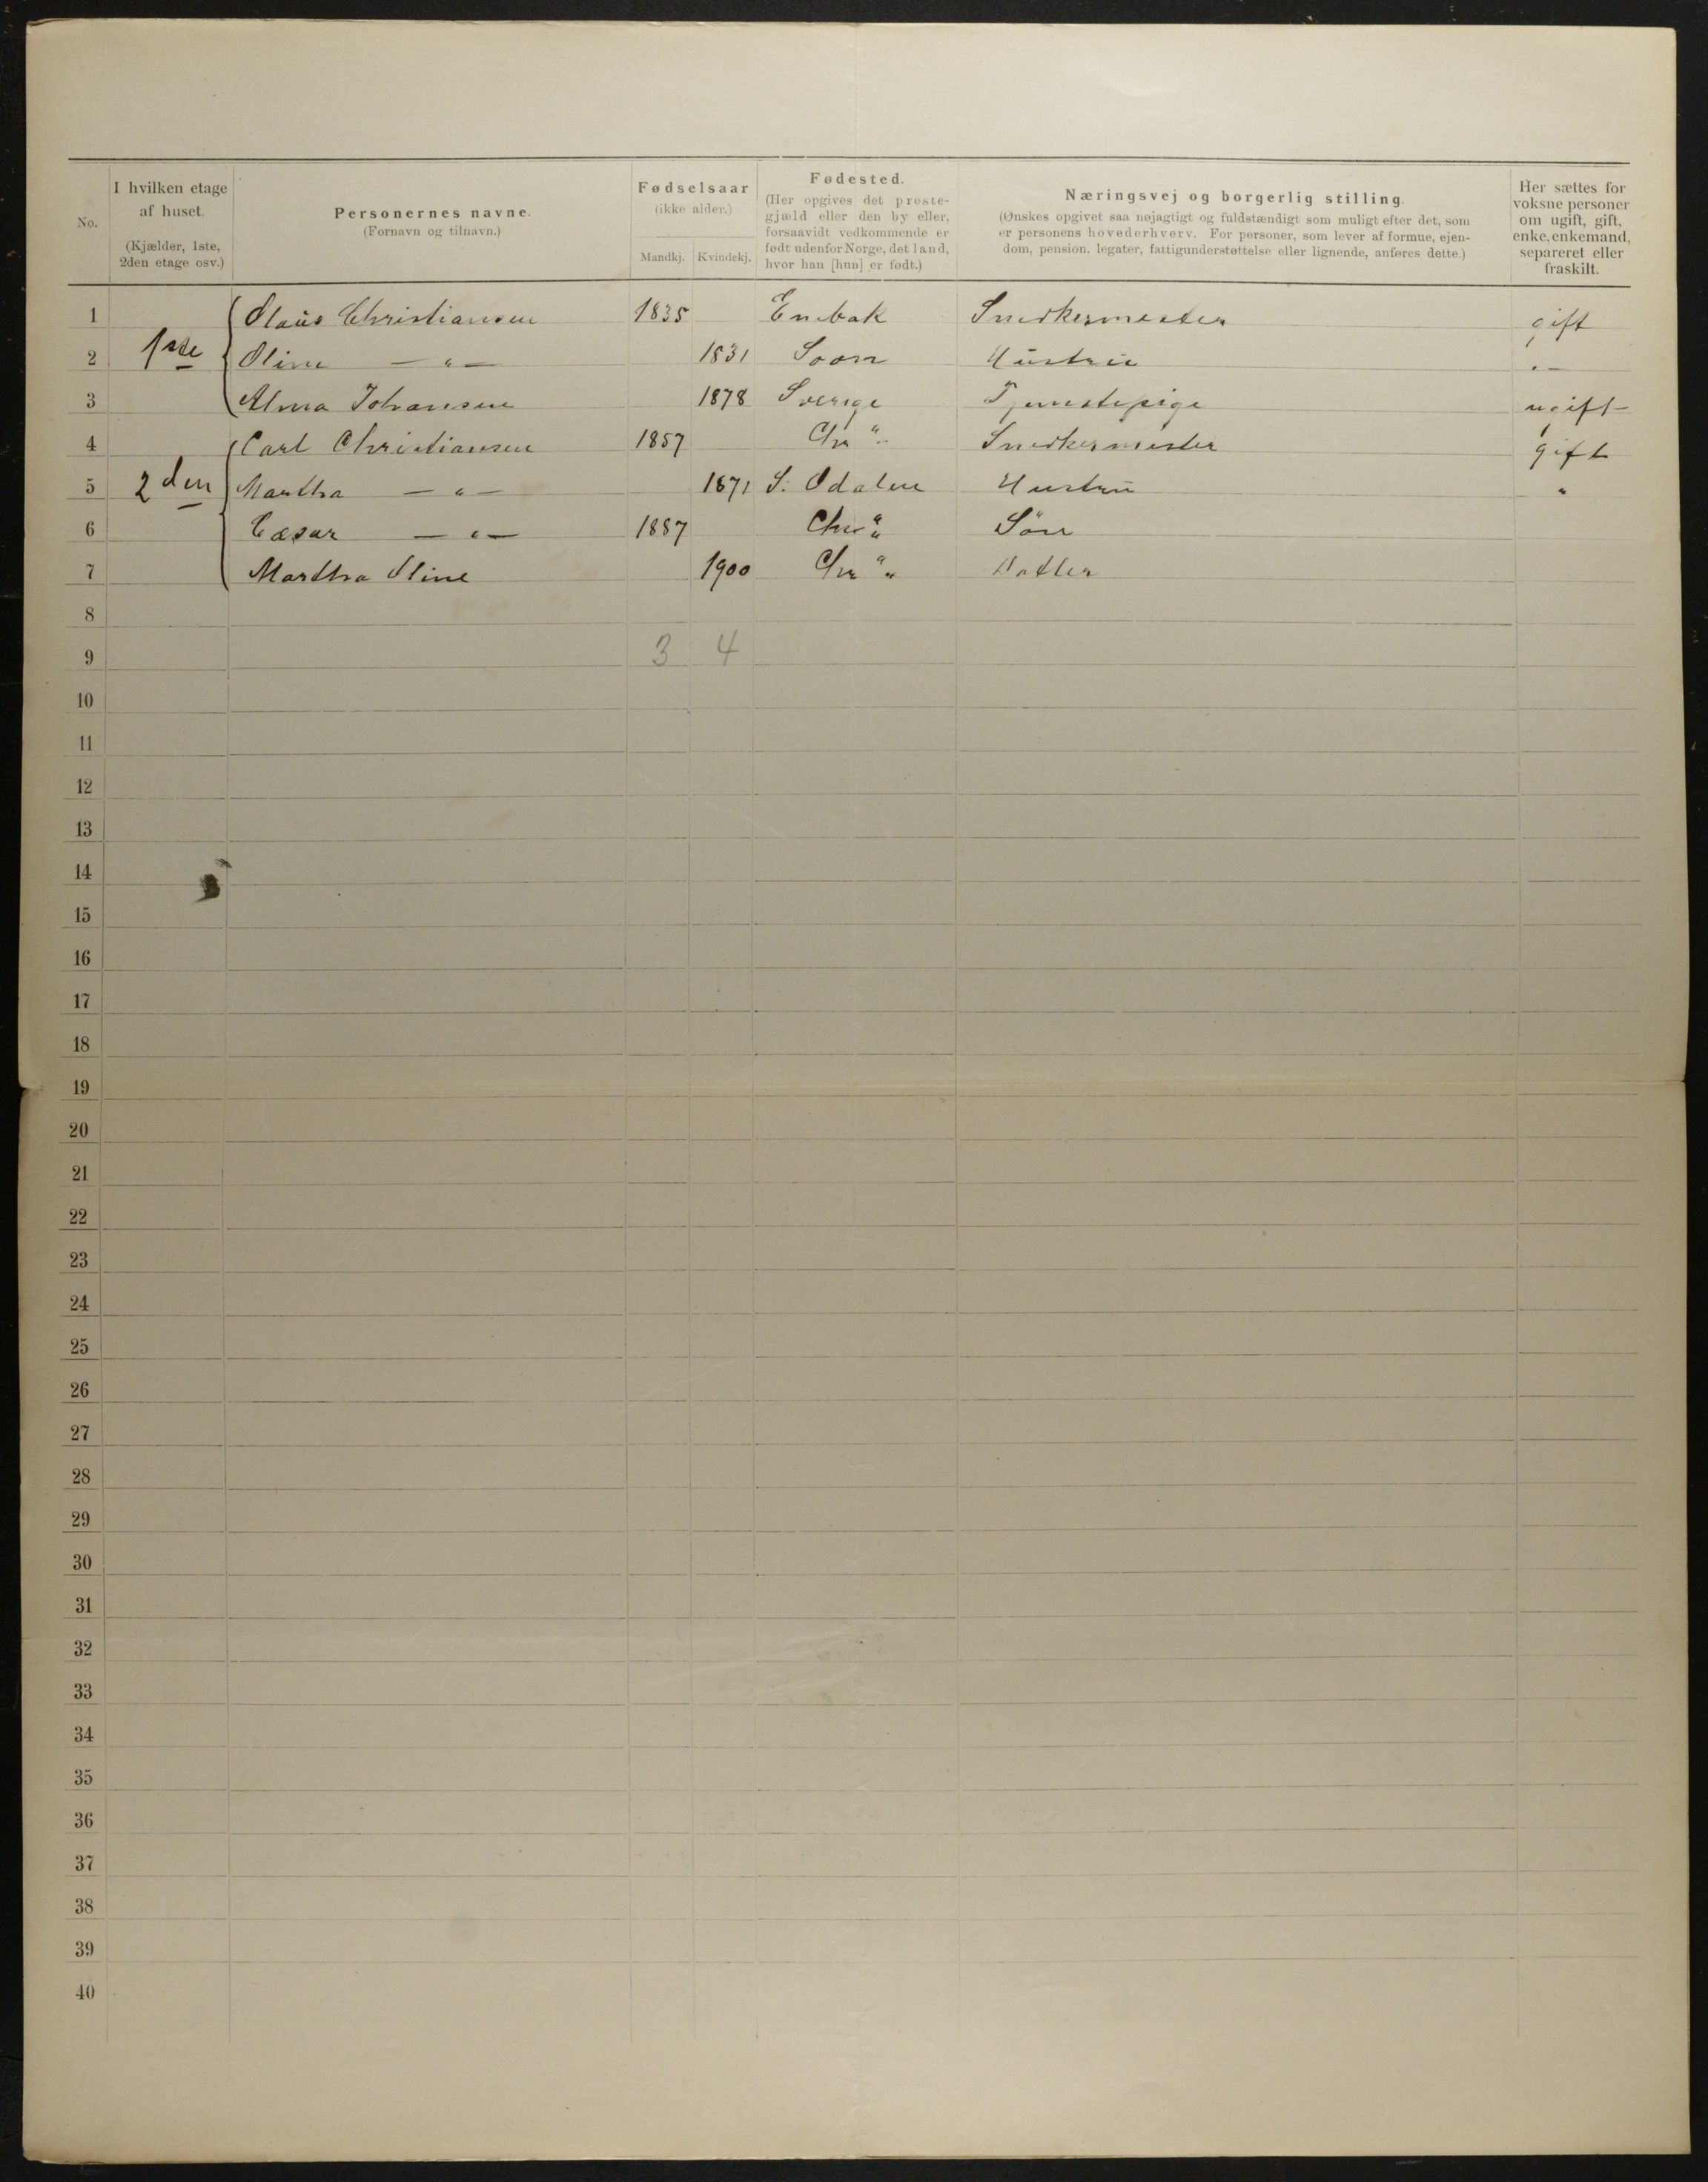 No.
I hvilken etage af huset.
(Kjælder, 1ste, 2den etage osv.)
Personernes navne.
(Fornavn og tilnavn.)
Fødselsaar
(ikke alder.)
Mandkj. Kvindekj.
Fødested.
(Her opgives det prestegjæld eller den by eller, forsaavidt vedkommende er født udenfor Norge, det land, hvor han [hun] er født.)
Næringsvej og borgerlig stilling.
(Ønskes opgivet saa nøjagtigt og fuldstændigt som muligt efter det, som er personens hovederhverv. For personer, som lever af formue, ejendom, pension, legater, fattigunderstøttelse eller lignende, anføres dette.)
Her sættes for voksne personer om ugift, gift, enke, enkemand, separeret eller fraskilt.
1 Olaus Christiansen 1835 Enebak Snedkermester gift
2 1ste Oline — " — 1831 Soon Hustru " —
3 Alma Johansen 1878 Sverige Tjenestepige ugift
4 Carl Christiansen 1857 Chr " Snedkermester gift
5 2den Martha — " — 1871 S. Odalen Hustru "
6 Cæsar — " — 1887 Chr " Sön
7 Martha Oline 1900 Chr " Datter
8
9 3 4
10
11
12
13
14
15
16
17
18
19
20
21
22
23
24
25
26
27
28
29
30
31
32
33
34
35
36
37
38
39
40